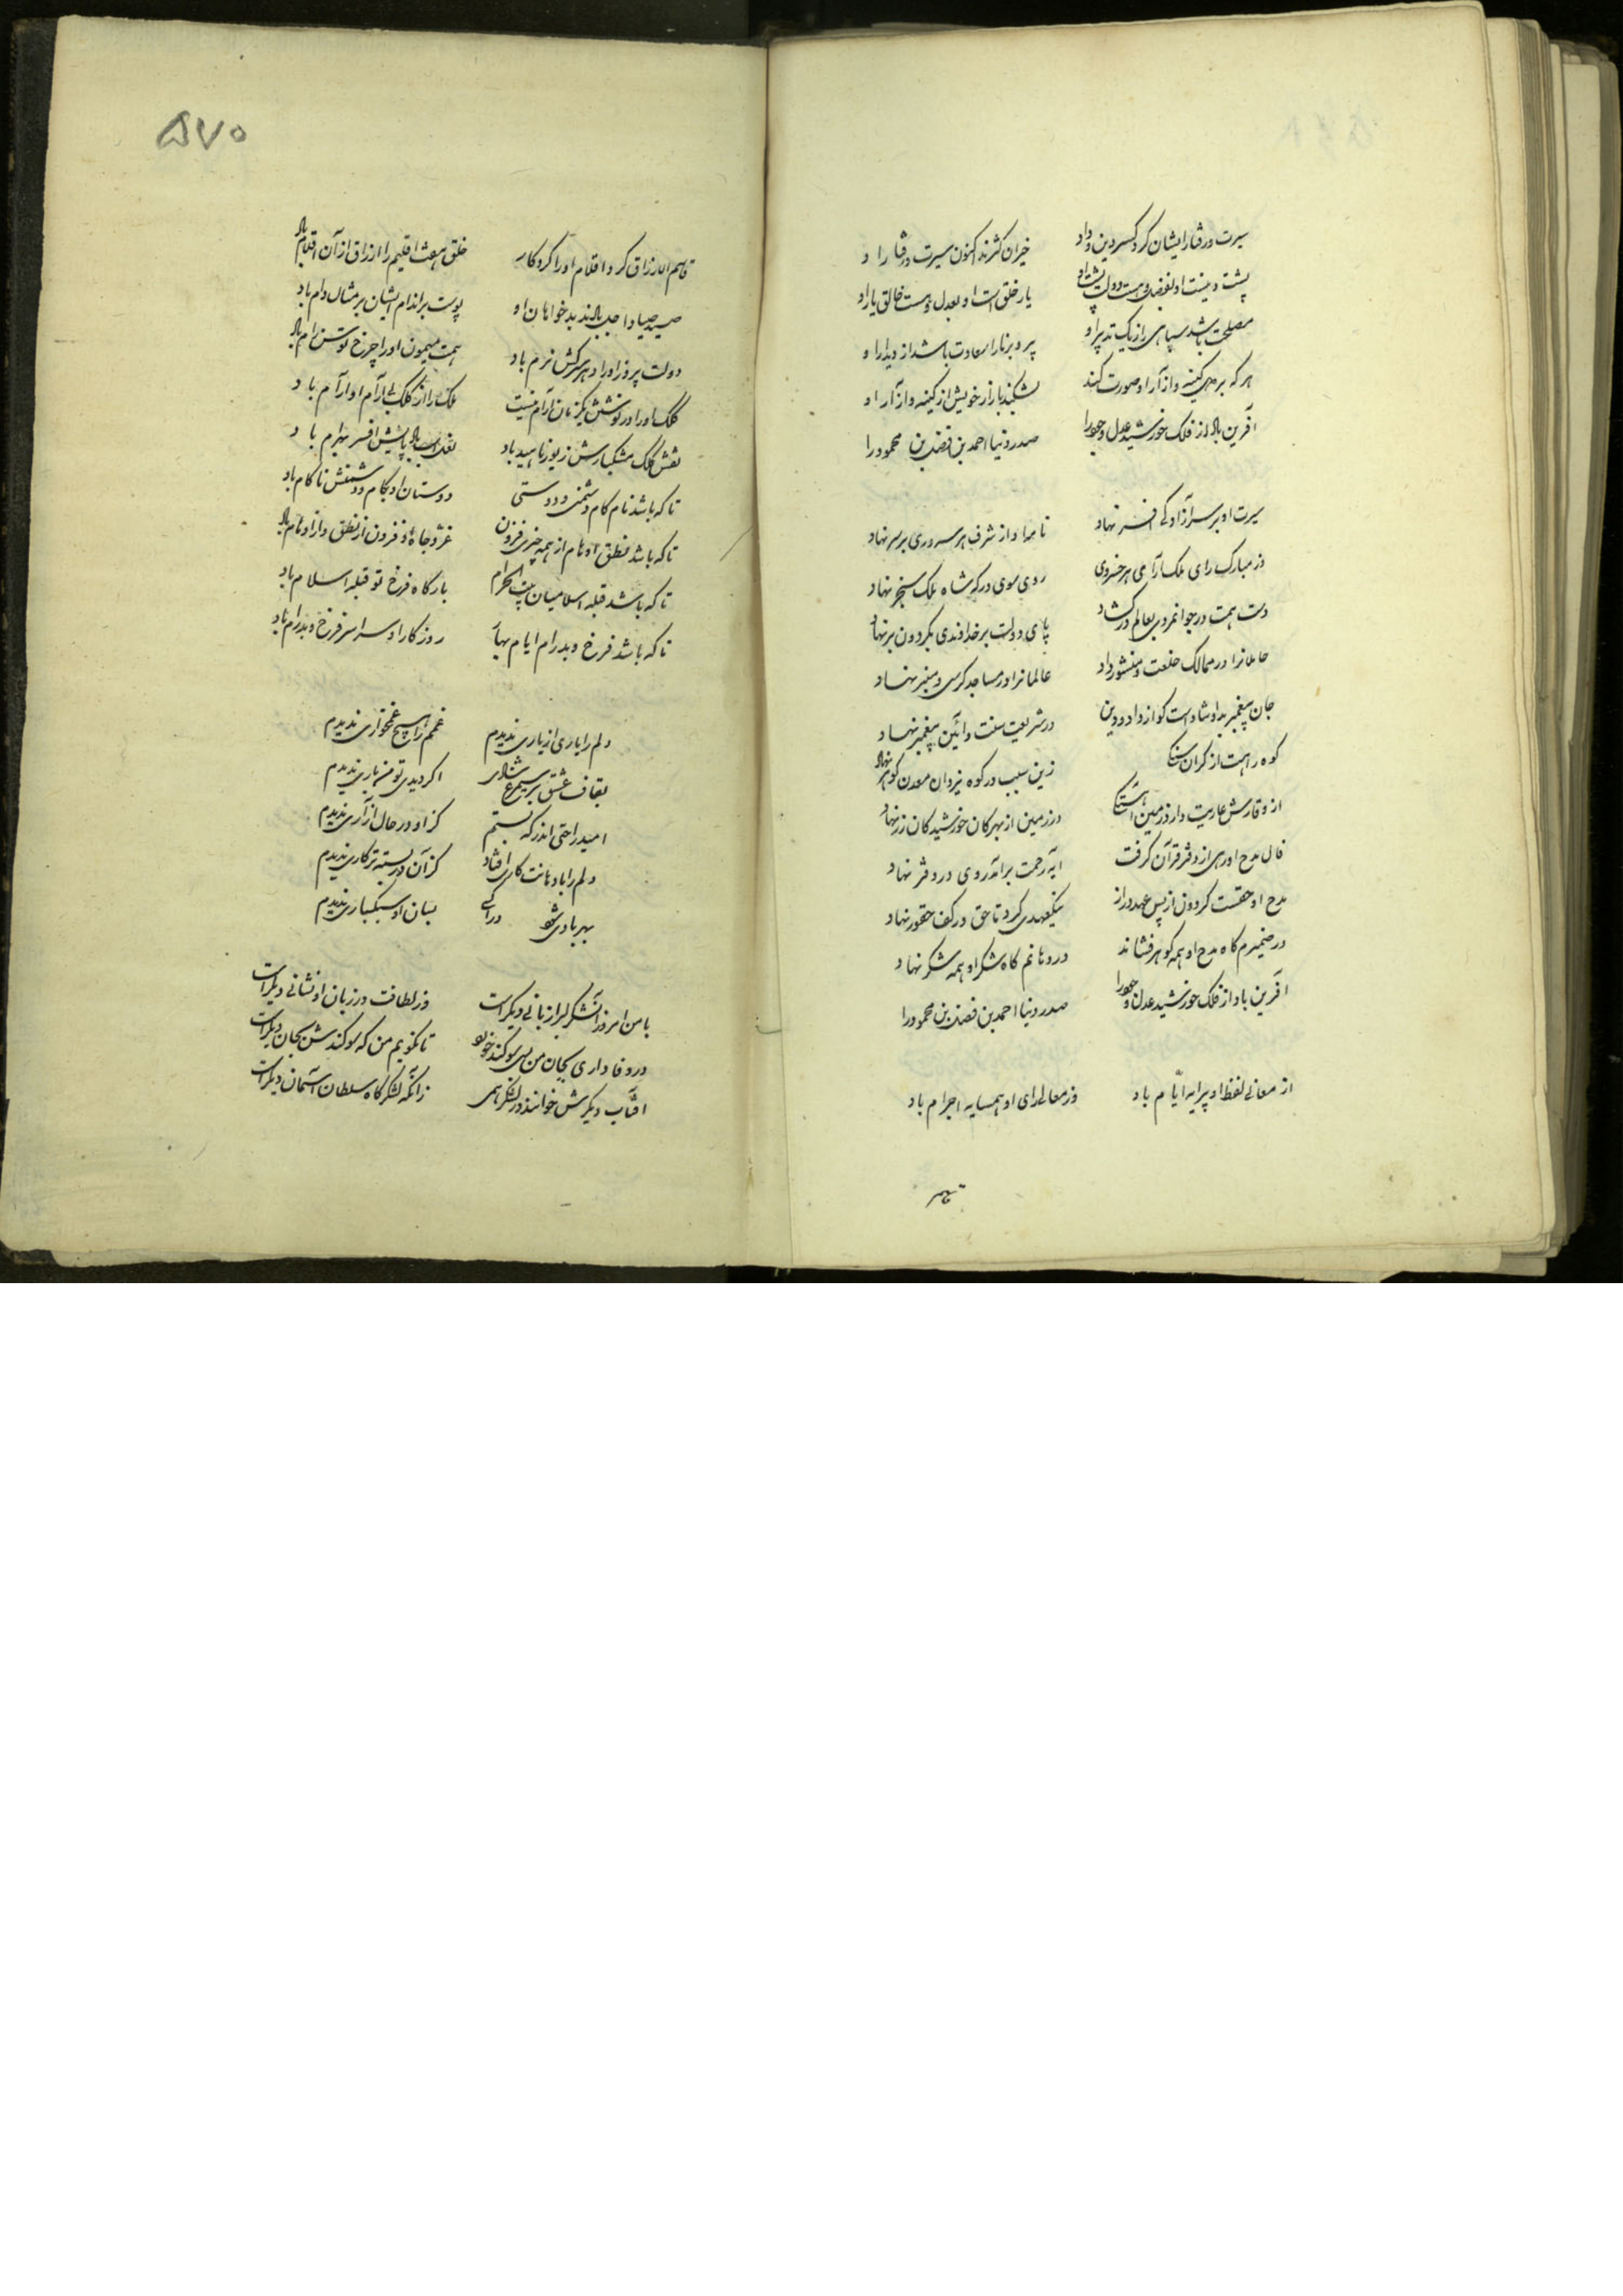 سیرت و رفتار ایشان کرد کسر دین و داد
خیران کثرند اکنون سیرت و رفتار او
یار خلق است او بعدل و هست خالق یار او
مصلحت باشد سپاهی را ز یک تدبیر او
پیر و برنا را سعادت باشد از دیدار او
هر که بر وی کینه و آزار او صورت کند
بشکند بازار خویش از کینه و آزار او
آفرین باد از فلک خورشید عدل وجود را
صدر دنیا احمد بن فضل بن محمود را
سیرت او بر سر آزادگی افسر نهاد
نام او از شرف هر سروری بر سر نهاد
در مبارک رای ملک آرای هر خسروی
روی سوی درکه شاه ملک سنجر نهاد
دست همت در جوانمردی بعالم در کشاد
پای دولت بر خداوندی بکردون بر نهاد
عاملانرا در ممالک خلعت و منشور داد
عالمانرا در مساجد کرسی و منبر نهاد
جان پیغمبر بدو شادست کو از داد و دین
در شریعت سنت و آئین پیغمبر نهاد
کوه را هست از کران
زین سبب در کوه یزدان معدن کوهر نهاد
از وقارش عاریت دارد زمین
در زمین از بهر کان خورشید کان زر نهاد
فال مدح او رهی از دفتر قرآن کرفت
آیه رحمت برآمد روی در دفتر نهاد
مدح او حقست کردون از پس عهد دراز
نیکعهدی کرد تا حق در کف حقور نهاد
در ضمیرم کاه مدح او همه کوهر فشاند
در دهانم کاه شکر او همه شکر نهاد
آفرین باد از فلک خورشید عدل وجود را
صدر دنیا احمد بن فضل بن محمود را
از معانی لفظ او پیرایه ایّام باد
وز معالی رای او همسایه اجرام باد
قاسم
۵۷۰
قاسم الارزاق کرد اقلام او را کردکار
خلق هفت اقلیم را ارزاق از آن اقلام باد
صید صیاد اجل بادند بدخواهان او
پوست بر اندام ایشان بر مثال دام باد
دولت پیروز او را دهر سرکش نرم باد
همت میمون او را چرخ توسن رام باد
کلک او را در نوشتن یکزمان آرام نیست
ملک را از کلک بی آرام او آرام باد
نقش کلک مشکبارش زیور ناهید باد
نعل اسب باد پایش افسر بهرام باد
تا که باشد نام کام دشمنی و دوستی
دوستان او بکام و دشمنش ناکام باد
تا که باشد نطق اوهام از همه چیزی فزون
عز و جاه او فزون از نطق و از اوهام باد
تا که باشد قبله اسلامیان بیت الحرام
بارکاه فرخ تو قبله اسلام باد
تا که باشد فرخ و پدرام ایام بهار
روزکار او سراسر فرخ و پدرام باد
دلم را یاری از یاری ندیدم
غمم را هیچ غمخواری ندیدم
بقاف عشق بر سیمرغ
اکر دیدی تو من باری ندیدم
امید راحتی اندر که بستم
کز او در حال آزاری ندیدم
دلم را با دهانت کاری افتاد
کز آن در بسته تر کاری ندیدم
بهر بادی
بسان او سبکباری ندیدم
با من امروز آن شکر لب را زبانی دیکر است
وز لطافت در زبان او نشانی دیکر است
در وفاداری بجان من همی سوکند خورد
تا نکویم من که سوکندش بجان دیکر است
آفتاب دیکرش خوانند در لشکر همی
زانکه لشکرکاه سلطان آسمان دیکر است